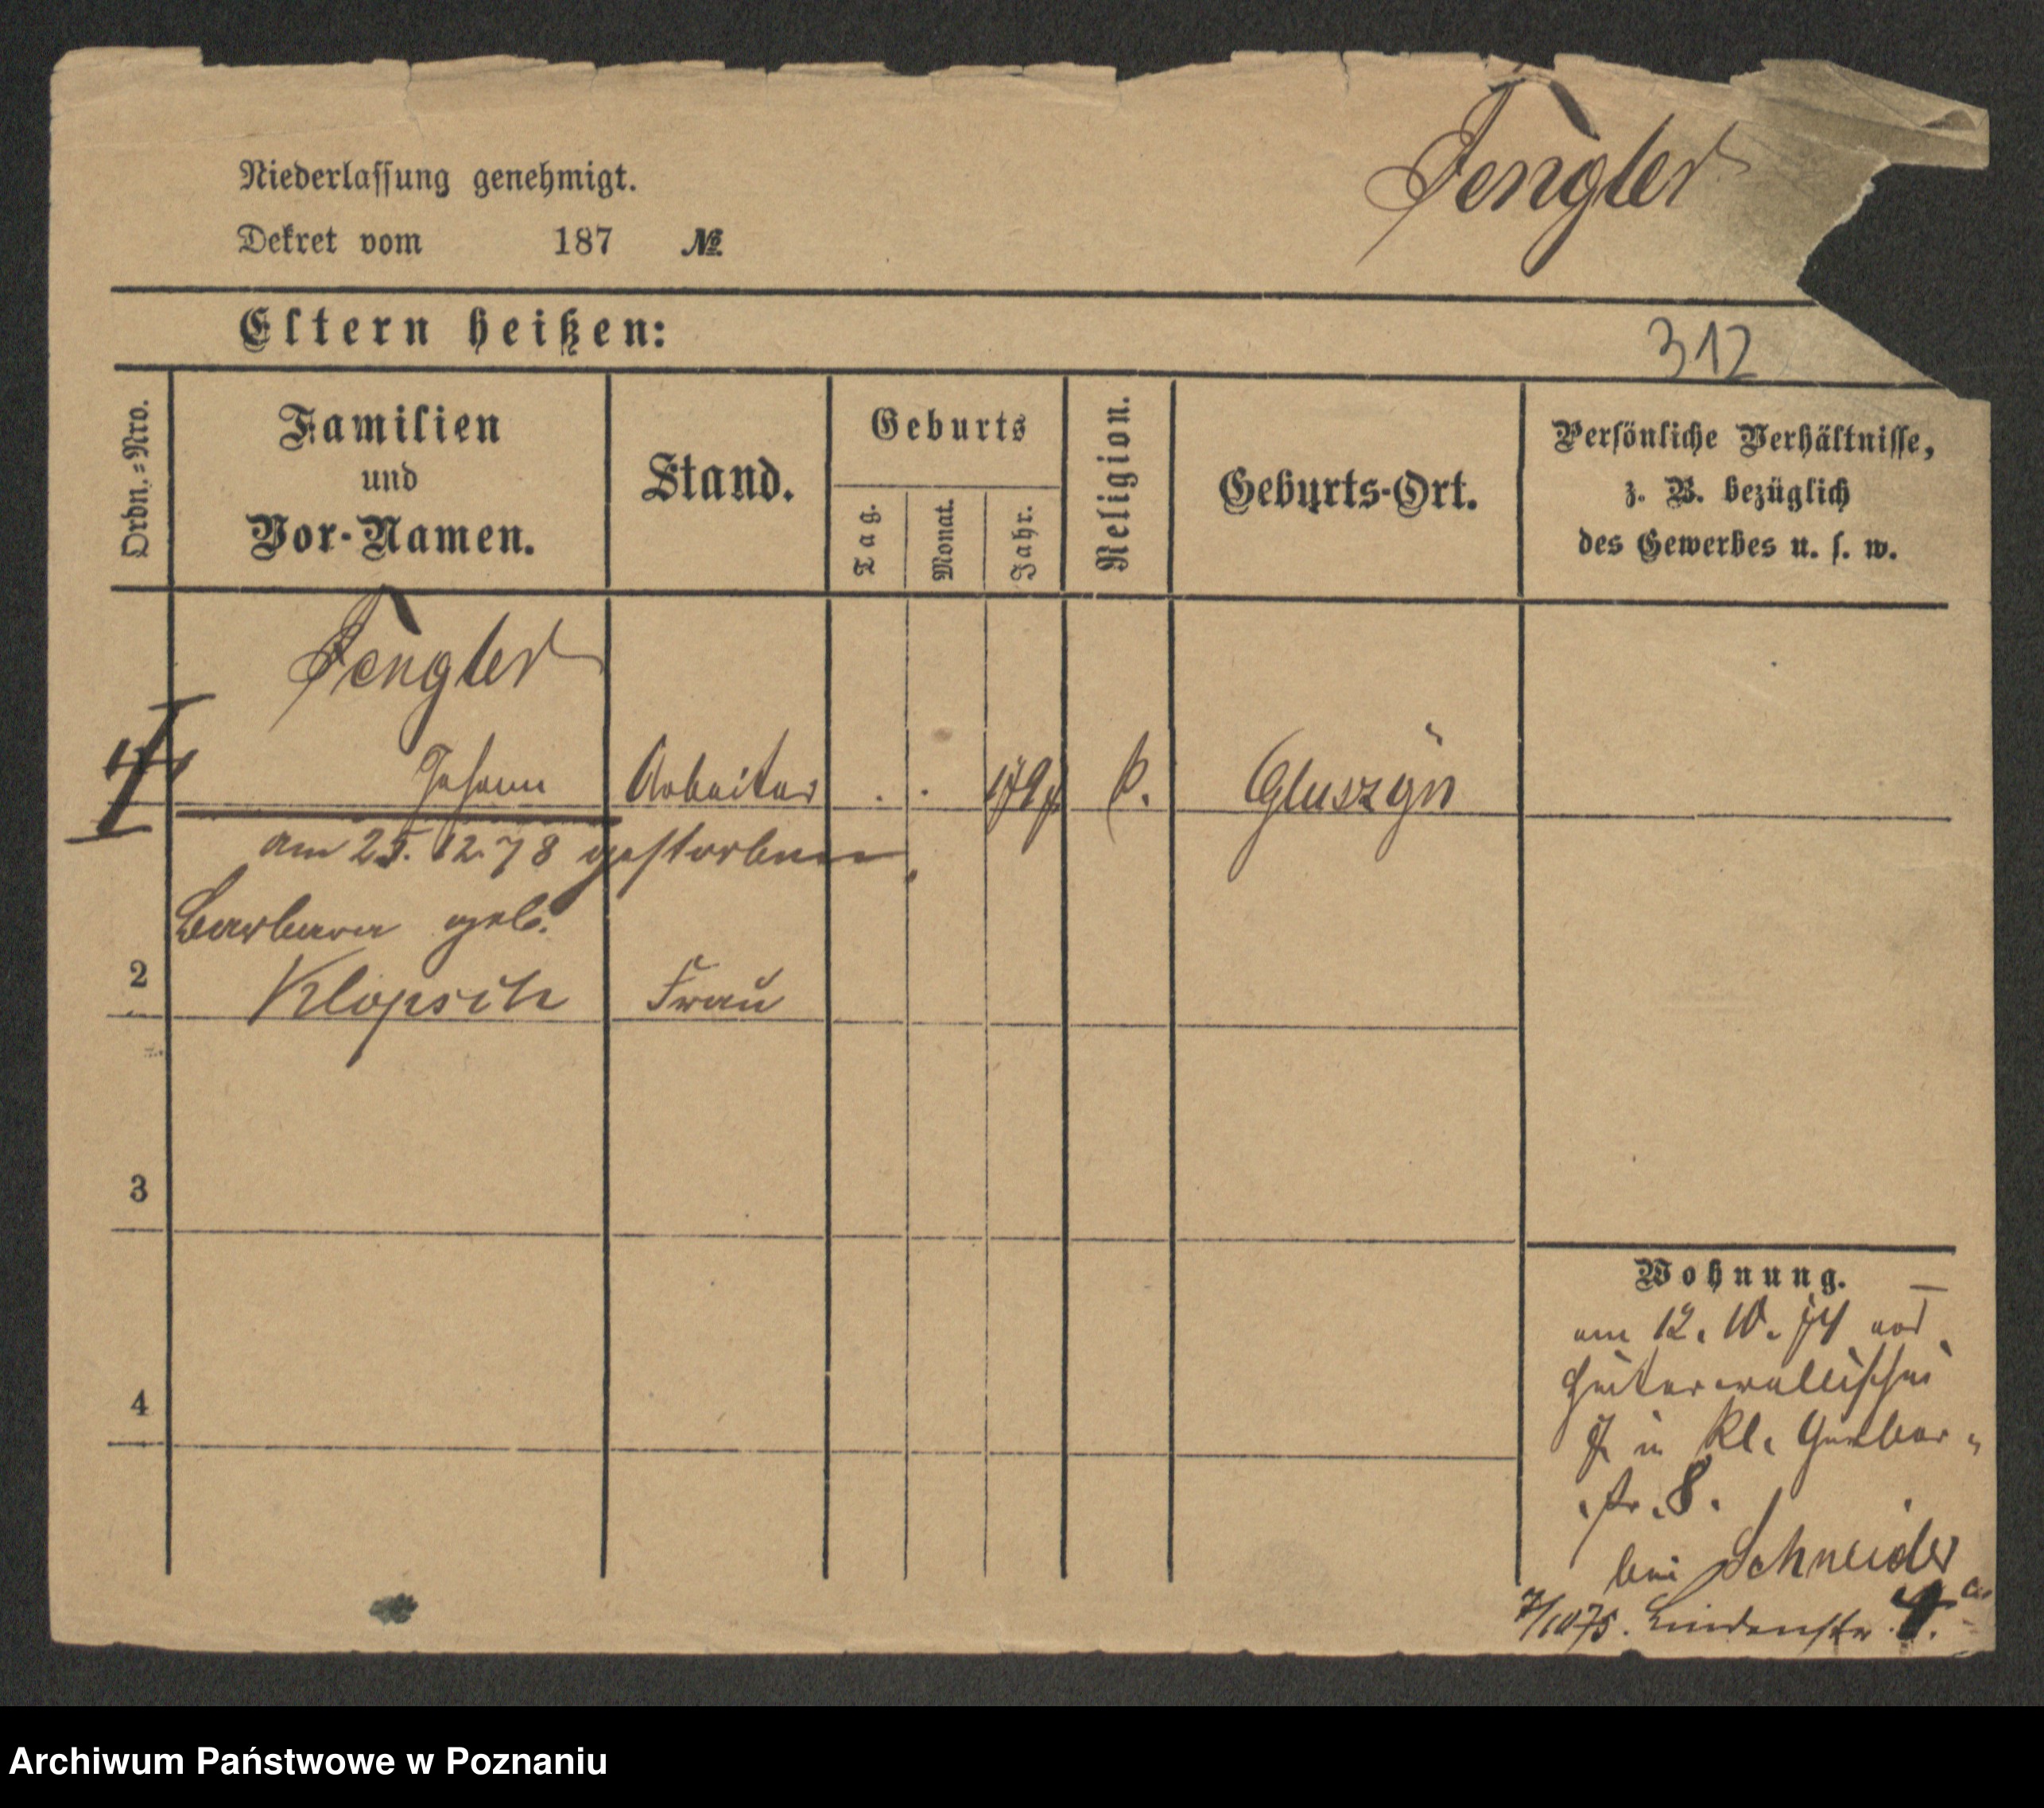 Fengler
Niederlassung genehmigt.
Dekret vom 187 №
Eltern heißen:
312
Ordn.=Nro.
Familien
und
Vor-Namen.
Stand.
Geburts
Tag.
Monat.
Jahr.
Religion.
Geburts-Ort.
Persönliche Verhältnisse,
z. B. bezüglich
des Gewerbes u. s. w.
Fengler
Johann Arbeiter . . 1797 k. Gluszyn
am 25. 12. 78 gestorben.
Barbara geb.
2 Klopsch Frau
3
4
Wohnung.
am 12. 10. 74 von
7 in kl. Gerber-
str. 8.
bei Schneider
7/10 75. Lindenstr. 4.
Archiwum Państwowe w Poznaniu